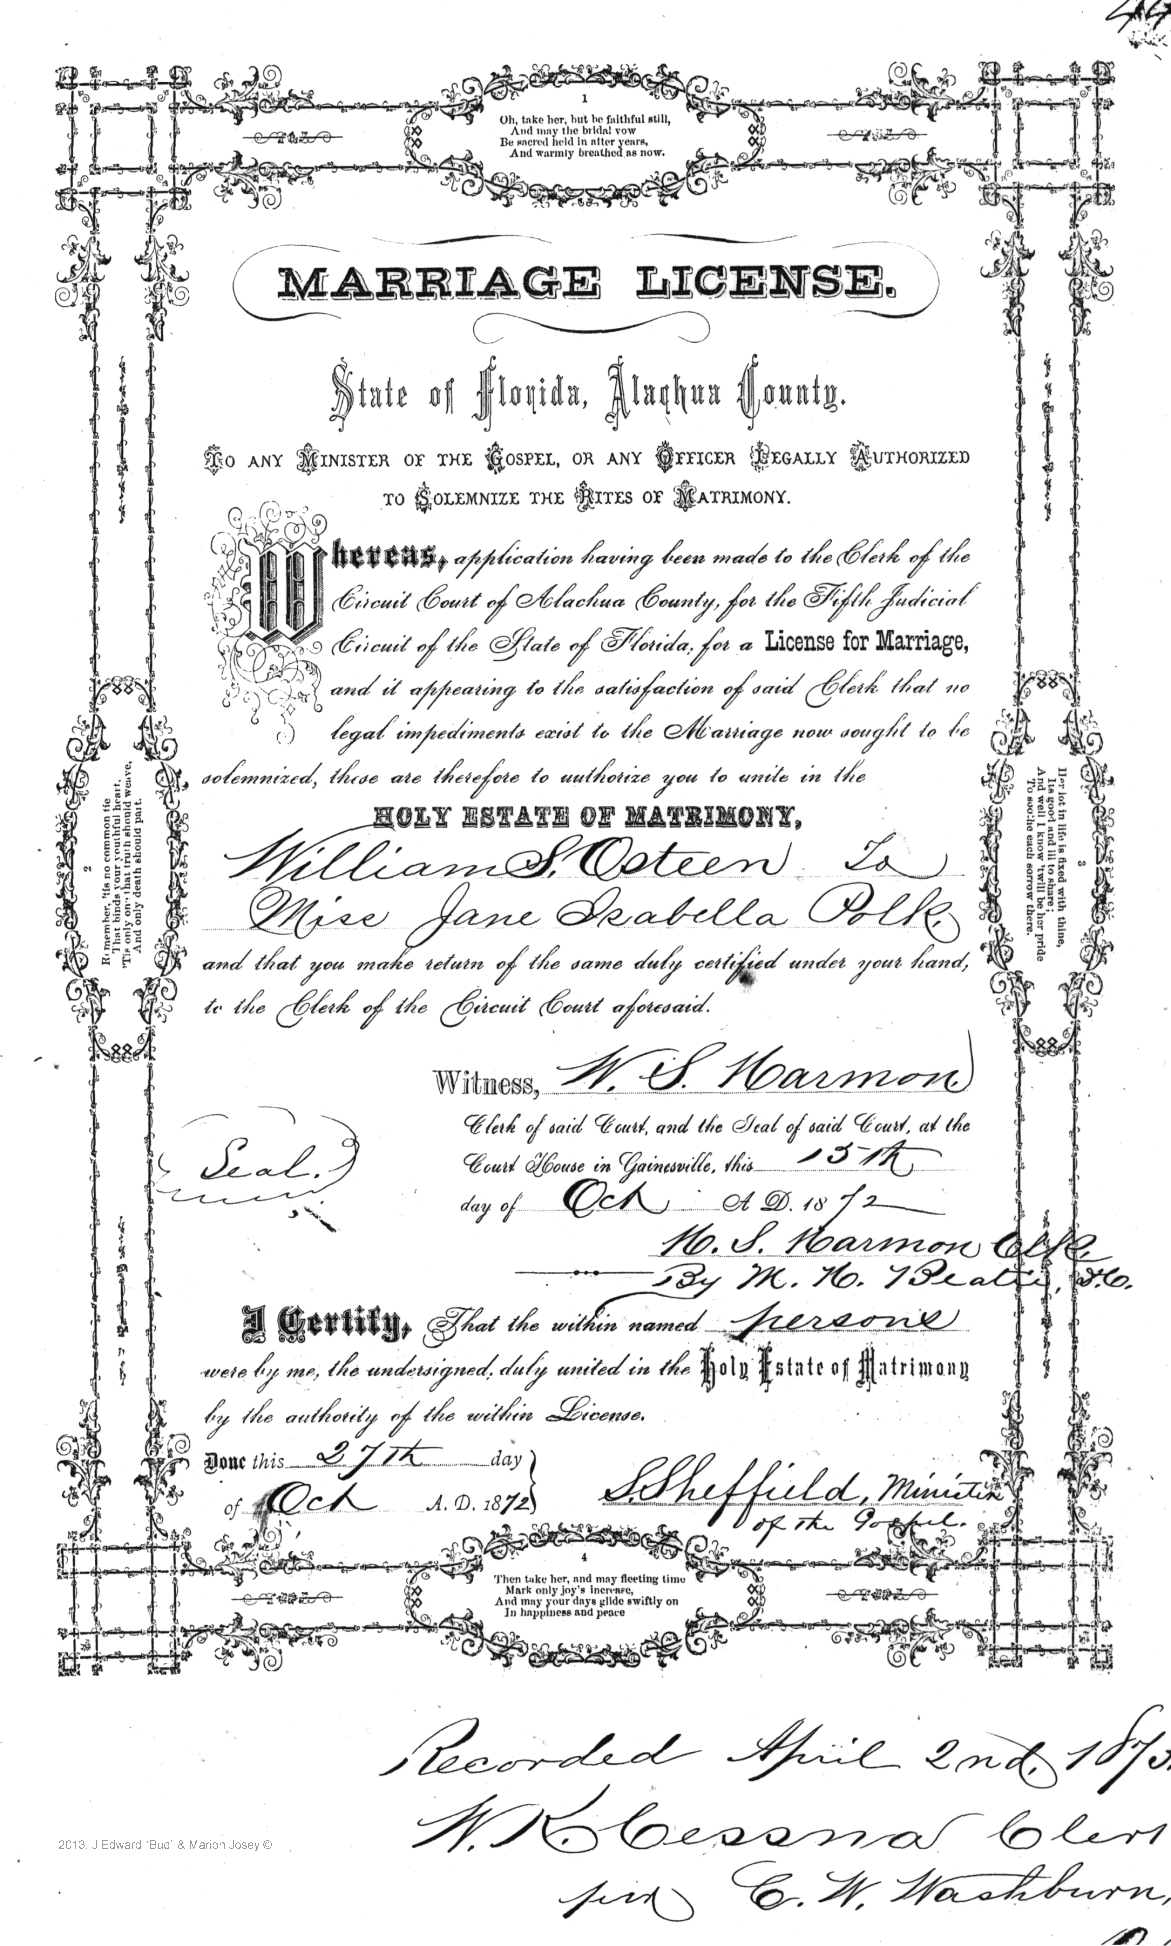 44
1
Oh, take her, but be faithful still,
And may the bridal vow
Be sacred held in after years,
And warmly breathed as now.
MARRIAGE LICENSE.
State of Florida, Alachua County.
To any Minister of the Gospel, or any Officer Legally Authorized
to Solemnize the Rites of Matrimony.
Whereas, application having been made to the Clerk of the
Circuit Court of Alachua County, for the Fifth Judicial
Circuit of the State of Florida, for a License for Marriage,
and it appearing to the satisfaction of said Clerk that no
legal impediments exist to the Marriage now sought to be
solemnized, these are therefore to authorize you to unite in the
HOLY ESTATE OF MATRIMONY,
William S. Osteen To
Miss Jane Isabella Polk.
and that you make return of the same duly certified under your hand,
to the Clerk of the Circuit Court aforesaid.
2
Remember, 'tis no common tie
That binds your youthful heart.
'Tis only one that truth should weave,
And only death should part.
3
Her lot in life is fixed with thine,
Its good and ill to share;
And well I know 'twill be her pride
To soothe each sorrow there.
Witness, W. S. Harmon
Clerk of said Court, and the Seal of said Court, at the
Court House in Gainesville, this 15th
day of Oct A D. 1872
Seal.
W. S. Harmon Clk.
By M. H. D.C.
I Certify, That the within named persons
were by me, the undersigned, duly united in the Holy Estate of Matrimony
by the authority of the within License.
Done this 27th day
of Oct A. D. 1872
S. Sheffield, Minister
of the Gospel.
4
Then take her, and may fleeting time
Mark only joy's increase,
And may your days glide swiftly on
In happiness and peace
Recorded April 2nd, 1873.
W. K. Cessna Clerk
per C. W. Washburn,
2013. J Edward 'Bud' & Marion Josey ©